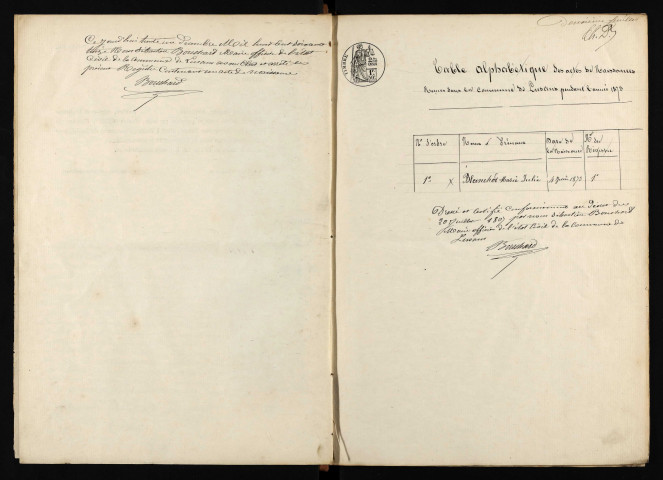 Ce jourd'hui trente un Décembre Mil huit cent soixante
Nous Sébastien Bouchard Maire officier de l'état
Civil de la Commune de Lusans avons clos et arrêté le
présent Registre Contenant un acte de naissance
Bouchard
Deuxième feuillet
TIMBRE
Table alphabétique des actes de Naissances
Reçus dans la Commune de Lusans pendant l'année 1873
Nos d'ordre Noms & Prénoms Date de la Naissance No du Registre
1er x Blanchot Marie Julie 4 Juin 1873 1er
Dressé et certifié Conformément au décret du
20 Juillet 1807 par nous Sébastien Bouchard
Maire officier de l'état Civil de la commune de
Lusans
Bouchard